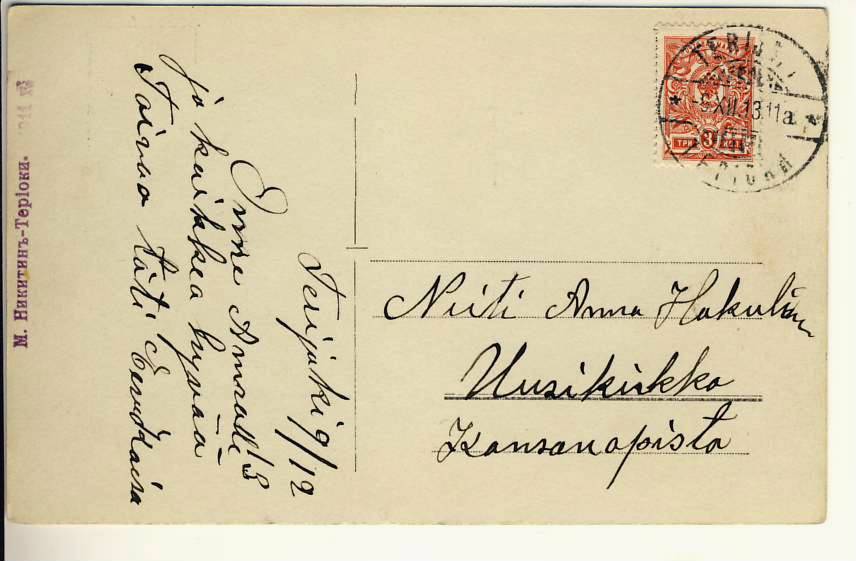 Terijoki 9/12 13
Onne Annalle
ja kaikkea hyvää
Toivoo täti
Neiti Anna
Uusikirkko
Kansanopisto
М. Никитинъ-Терiоки.
TERIJOKI
9.XII.13.11a
3